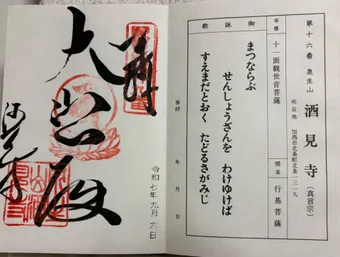 第十六番 泉生山
酒見寺(真言宗)
所在地 加西市北条町北条一三一九
本尊 十一面観世音菩薩
開基 行基菩薩
御詠歌
まつならぶ
せんしょうざんを わけゆけば
すえまだとおく たどるさがみじ
参拝 年 月 日
大悲殿
酒見寺
令和七年九月六日